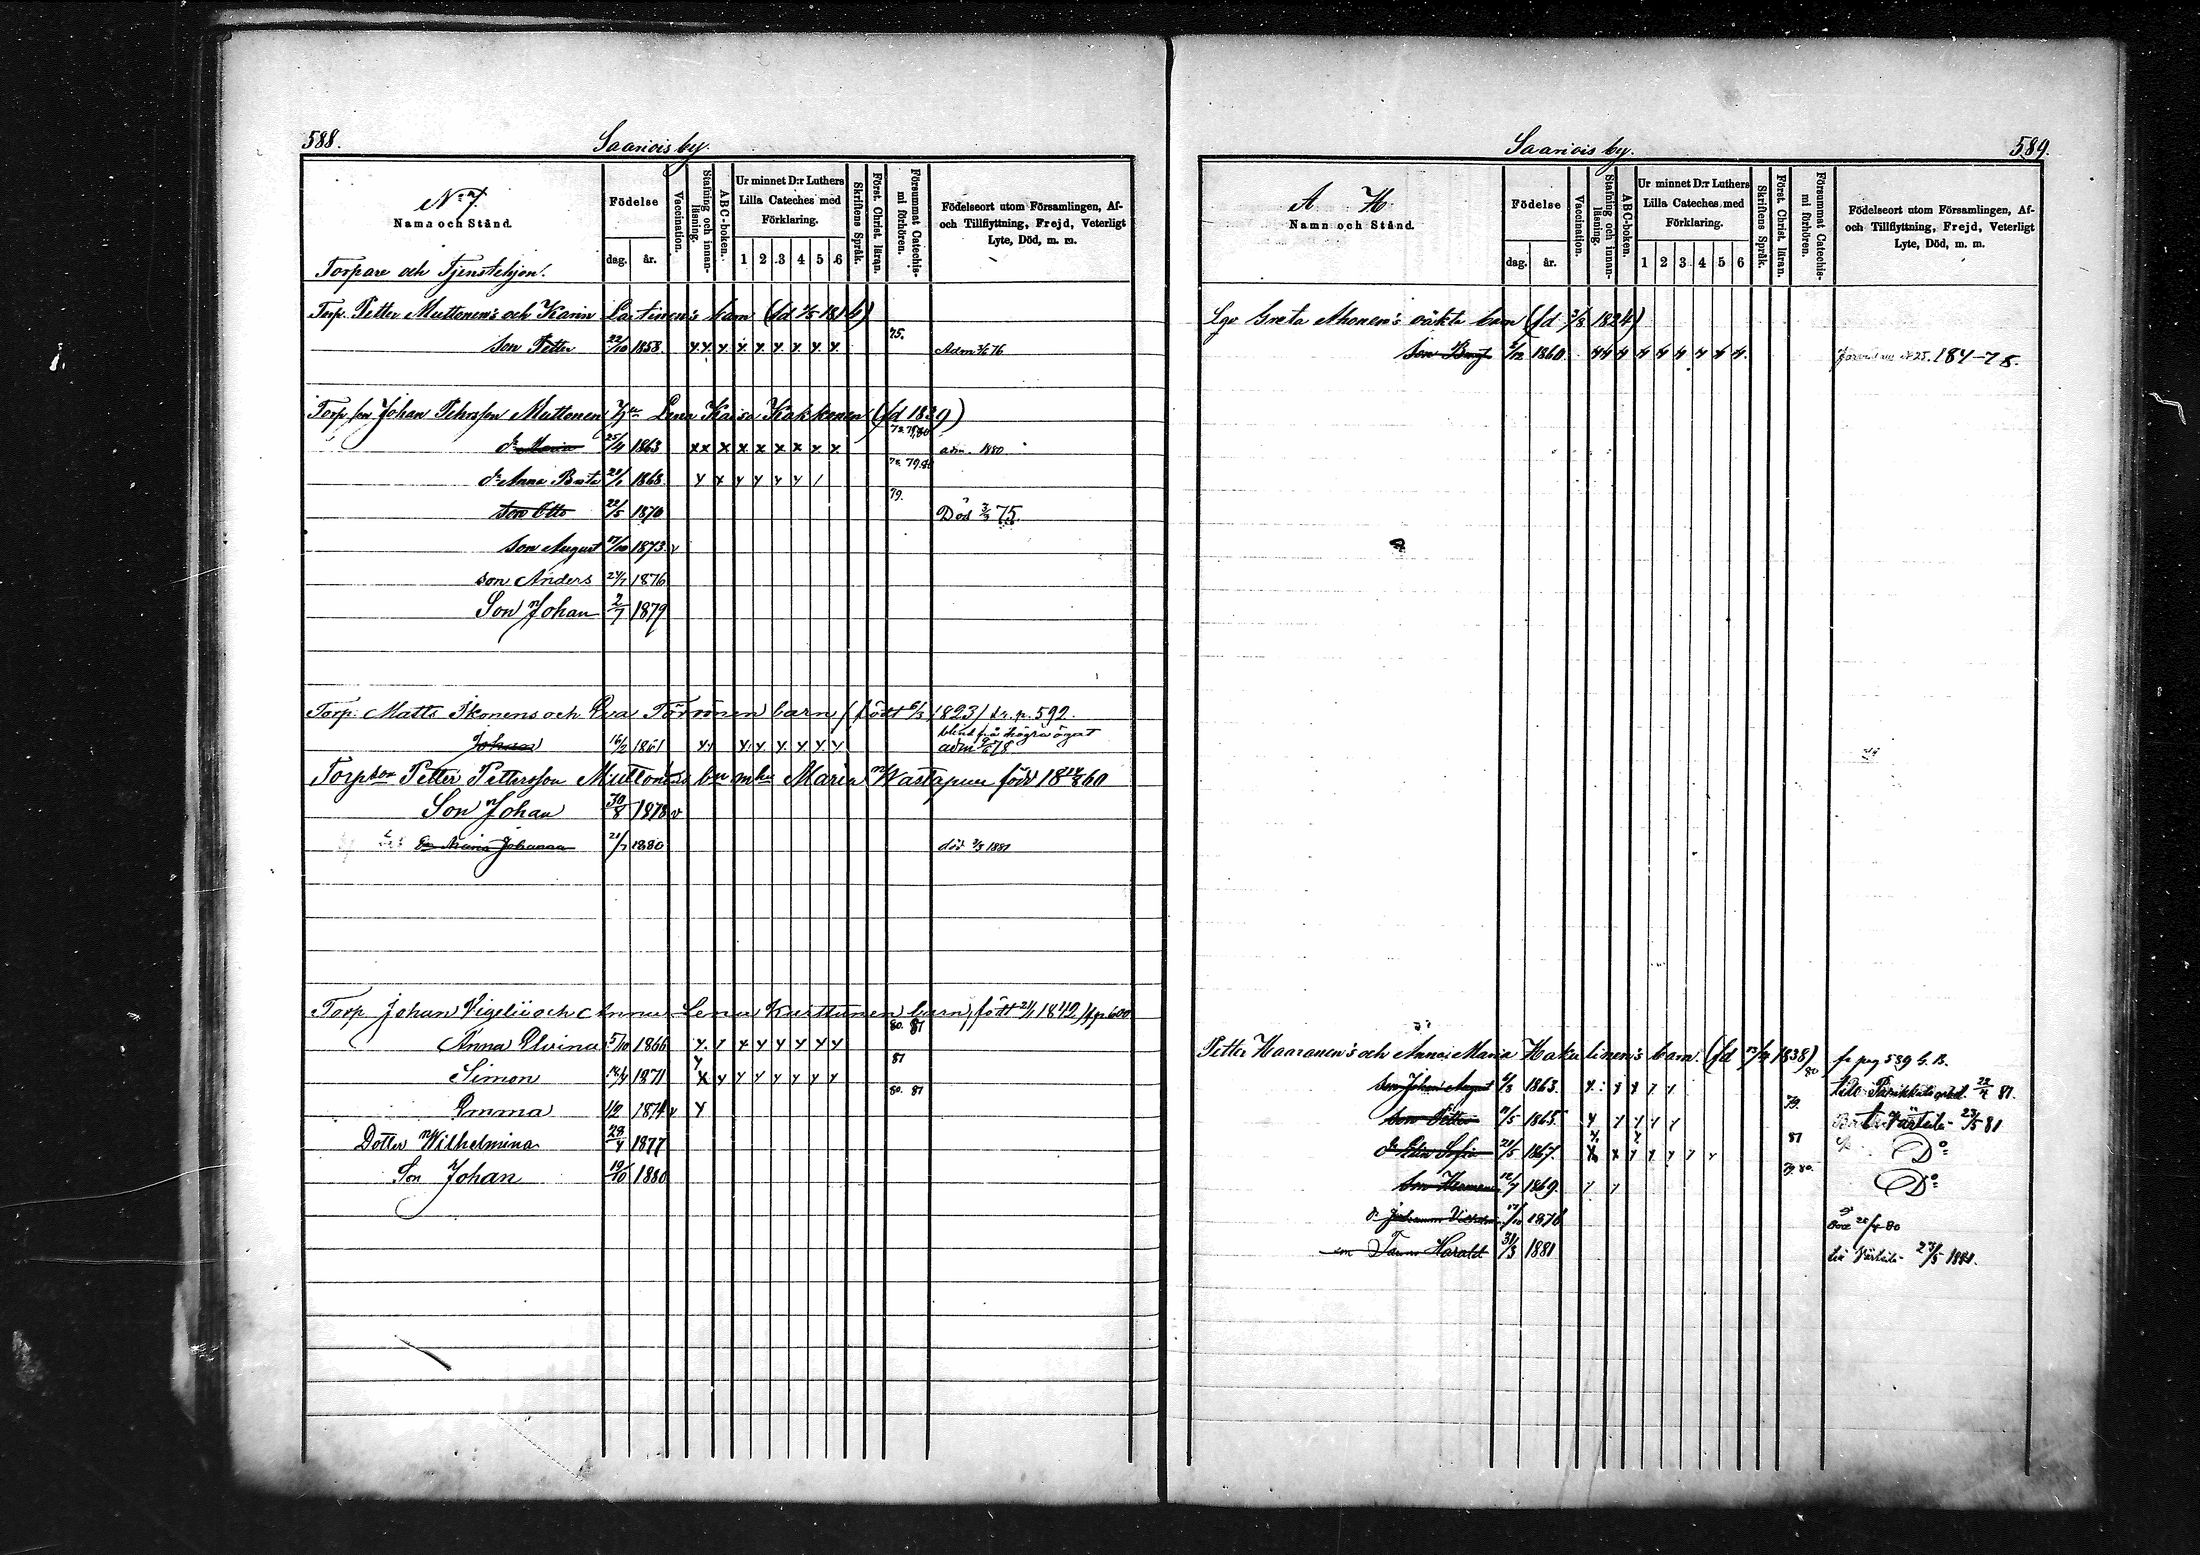 588. Saariois by.
No 7.
Namn och Stånd.
Födelse
dag. år.
Vaccination.
Stafning och innan-läsning.
ABC-boken.
Ur minnet D:r Luthers Lilla Cateches med Förklaring.
1 2 3 4 5 6
Skriftens Språk.
Först. Christ. läran.
Försummat Catechis-mi förhören.
Födelseort utom Församlingen, Af- och Tillflyttning, Frejd, Veterligt Lyte, Död, m. m.
Torpare och Tjenstehjon.
Torp. Petter Muttonen's och Karin Lastinen's barn (fd 1816)
75.
Son Petter 22/10 1858. x x x x x x x x x Adm 76
Torp. son Johan Pehrsson Muttonen Lena Kaisa Kakkonen (fd 1839)
dr Maria 25/4 1863 x x x x x x x x x adm. 1880
dr Anna 1868
79.
son Otto 22/5 1870 Död 75.
son August 1873 v
son Anders 24/7 1876
Son Johan 2/7 1879
Torp. Matts Ikonens och Eva Törönen barn (född 6/3 1823) fr. p. 592.
blind på högra ögat
Johan 16/2 1861 adm 78
Torpson Petter Pettersson Muttonens Maria Wastapuu född 1860
Son Johan 30/8 1878 v
Maria Johanna 1880 död 1881
Torp Johan Vigelii och Anna Lena Kurttunen barn, född 1842
80. 81
Anna Elvina 5/10 1866
81
Simon 1871
80. 81
Emma 1/2 1874 v
Dotter Wilhelmina 28/4 1877
Son Johan 19/10 1880
Saariois by. 589.
A H
Namn och Stånd.
Födelse
dag. år.
Vaccination.
Stafning och innan-läsning.
ABC-boken.
Ur minnet D:r Luthers Lilla Cateches med Förklaring.
1 2 3 4 5 6
Skriftens Språk.
Först Christ. läran.
Försummat Catechis-mi förhören.
Födelseort utom Församlingen, Af- och Tillflyttning, Frejd, Veterligt Lyte, Död, m. m.
Greta Ahonen's oäkta barn (fd 1824)
son 1860 184-78.
Petter Haaranen's och Anna Maria Hakulinen's barn. (fd 1838) fr pag 539
80
son Johan August 1863 81.
79.
son Petter 1865 Värtsilä 23/5 81
81
dr Sofia 1867. Do
79. 80.
son Herman 12/7 1869. Do
dr Johanna 1876 80
son Harald 31/3 1881 till Värtsilä 23/5 1881.